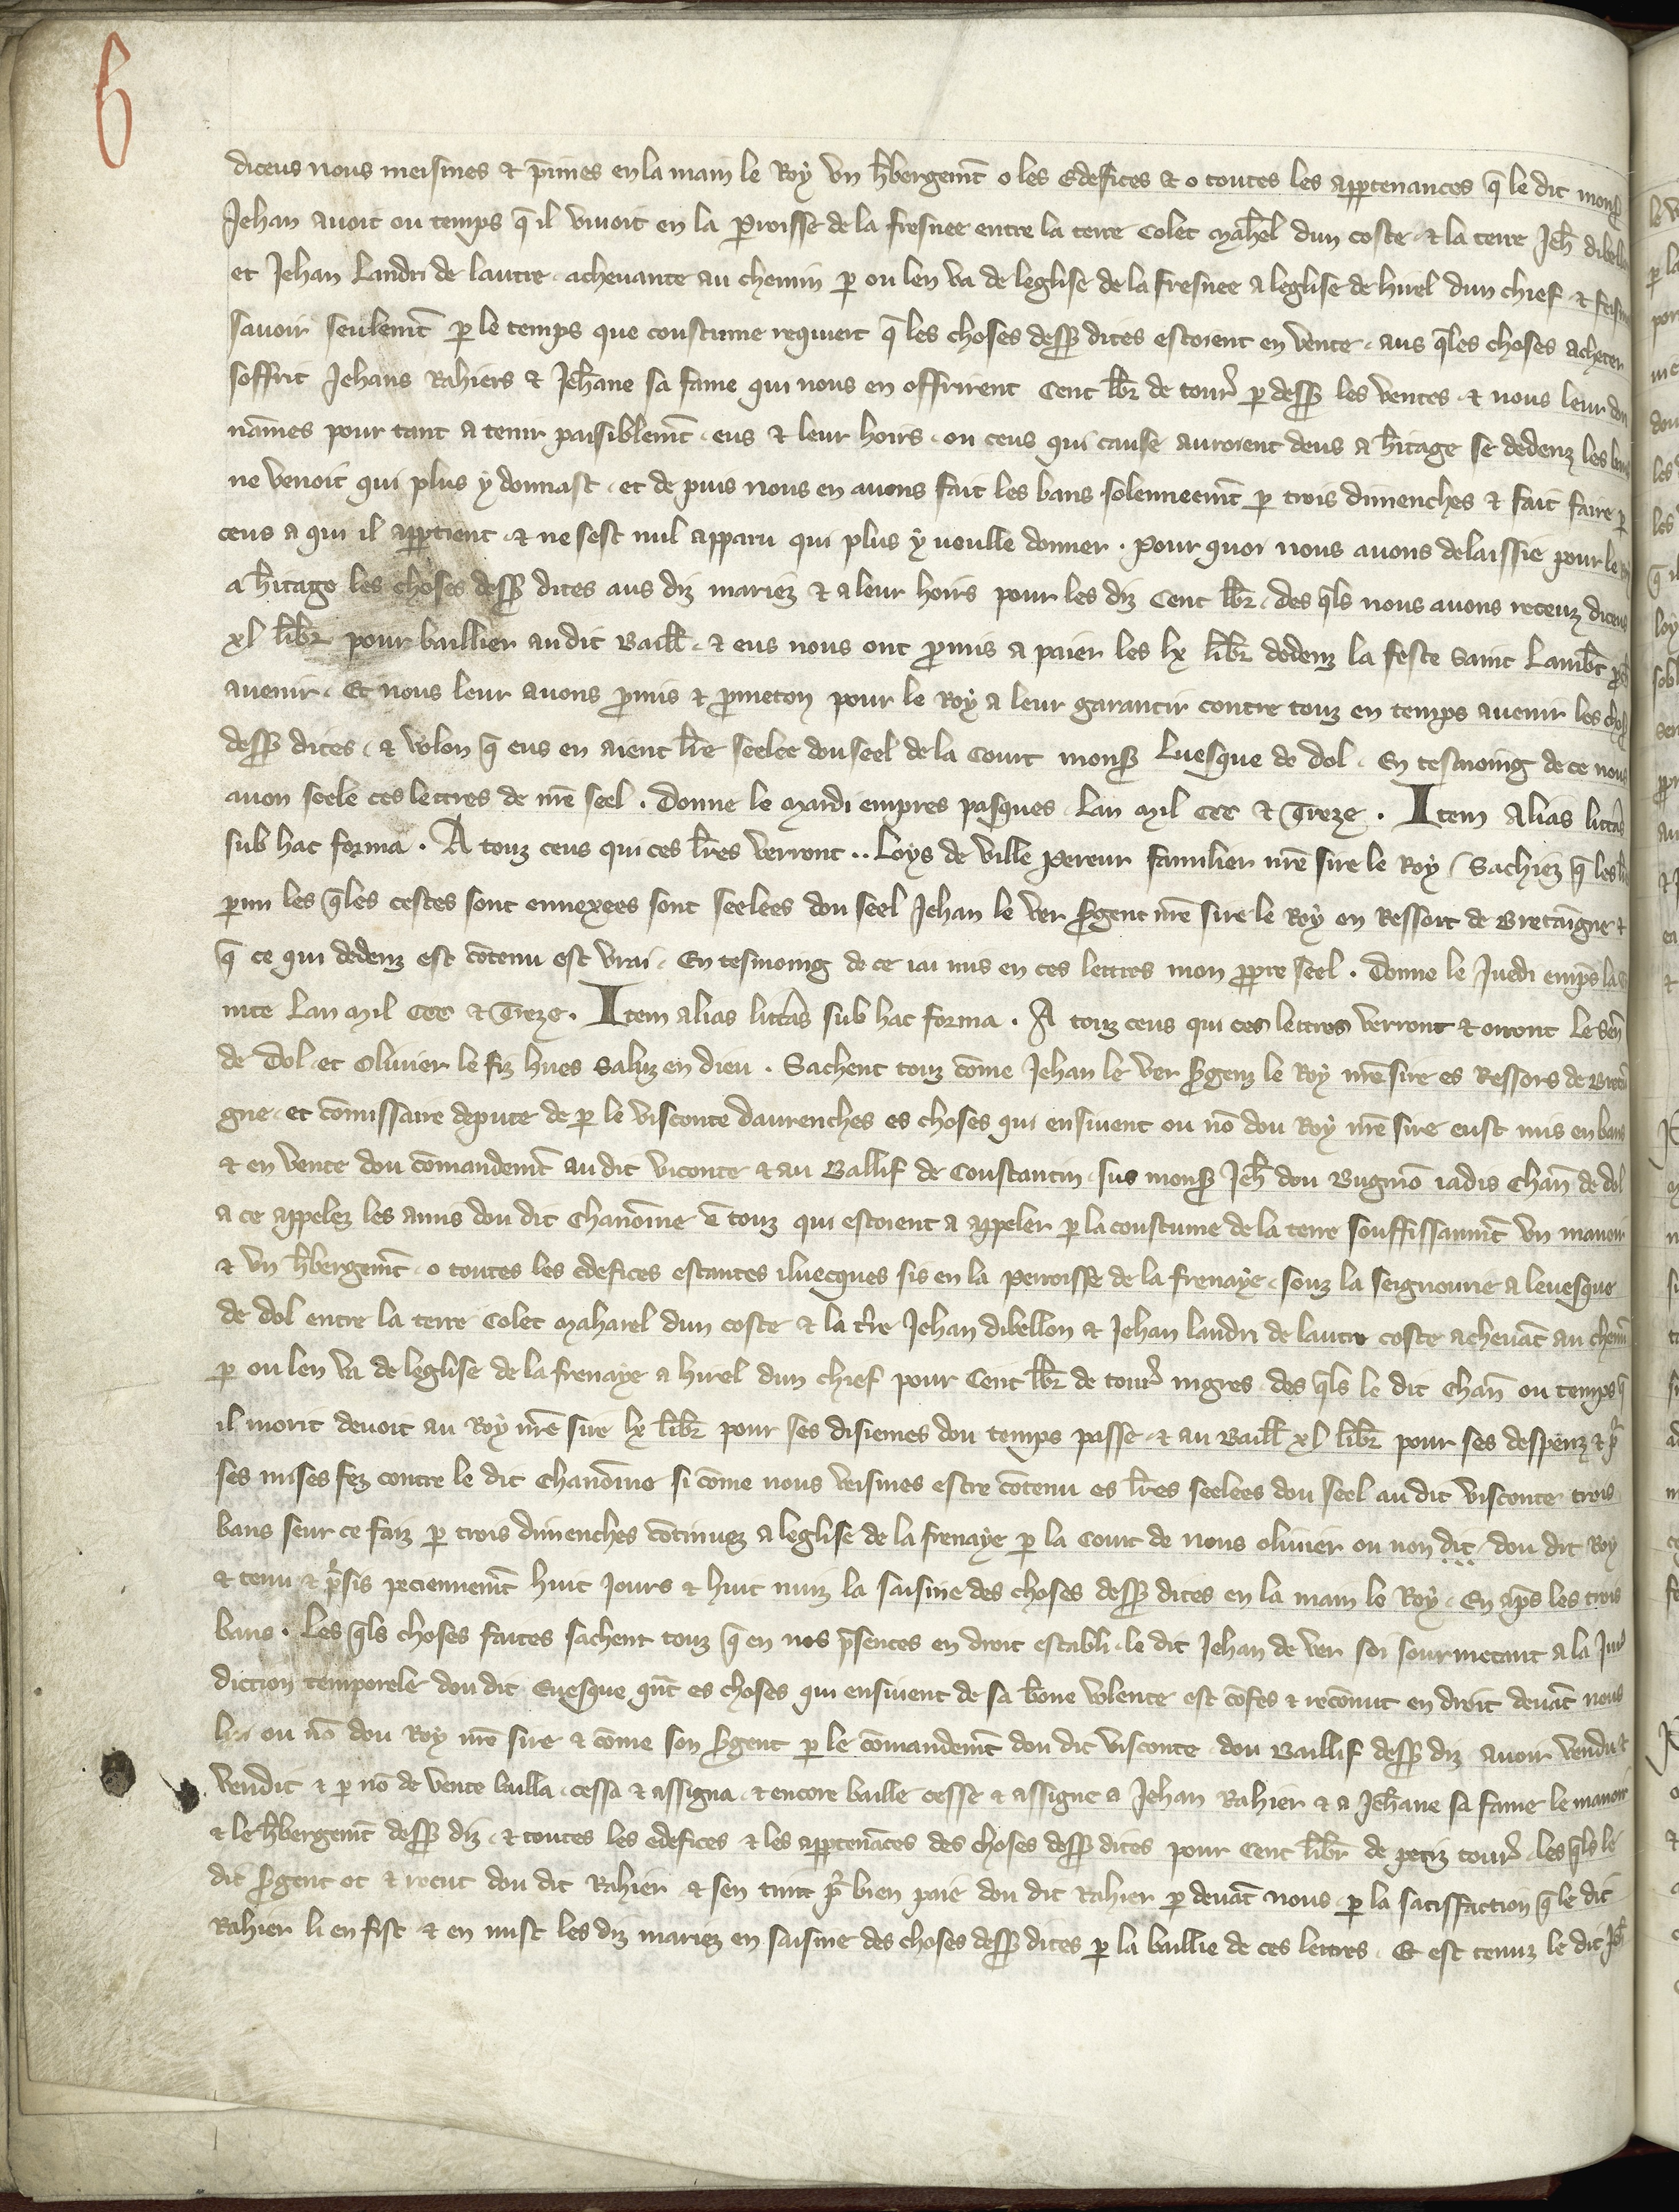 6
diceus nous meismes et p̄imes en la main le Roy vn h̄bergem̄t o les Edefices et o toutes les app̱tenances q̄ le dit mons̄
Jehan auoit ou temps q̄ il viuoit en la P̱roisse de la fresnee entre la terre Colet Mah̄el dun coste et la terre Jeh̄ dibell
et Jehan Landri de lautre acheuante au chemin p̱ ou len va de leglise de la fresnee a leglise de hirel dun chief et feis
sauoir seulem̄t p̱ le temps que coustume requiert q̄ les choses dess̄ dites estoient en vente aus q̄les choses acheter
soffrit Jehans Rahiers et Jeh̄ane sa fame qui nous en offrirent Cent lb̄r de tour̄ p̱ dess̄ les ventes et nous leur don
nāmes pour tant a tenir paisiblem̄t eus et leur hoirs ou ceus qui cause auroient deus a h̄itage se dedenz les bans
ne venoit qui plus y donnast et de puis nous en auons fait les bans solenneem̄t p̱ trois dimenches et fait faire p̱
ceus a qui il app̱tient et ne sest nul apparu qui plus y voulle donner . pour quoi nous auons delaissie pour le roy
a h̄itage les choses dess̄ dites aus diz mariez et a leur hoirs pour les diz Cent lb̄r des q̄ls nous auons receuz diceus
xl lib̄r pour baillier au dit Baill̄ et eus nous ont p̱mis a paier les lx lib̄r dedenz la feste saint Lamb̄t p̱ch̄
auenir Et nous leur auons p̱mis et p̱meton pour le Roy a leur garantir contre touz en temps auenir les choses
dess̄ dites et volon q̄ eus en aient lr̄e seelee dou seel de la Court mons̄ Luesque de dol En tesmoing de ce nous
auon seele ces lettres de nr̄e seel . Donne le Mardi empres pasques Lan Mil CCC et Treze . Item Alias litt̄as
sub hac forma . A touz ceus qui ces lr̄es verront .. Loys de ville pereur familier nr̄e sire le Roy Sachiez q̄ les lr̄es
p̱mi les q̄les cestes sont ennexees sont seelees dou seel Jehan le ver s̄gent nr̄e sire le Roy ou Ressort de Bretaigne et
q̄ ce qui dedenz est cōtenu est vrai En tesmoing de ce iai mis en ces lettres mon pp̱re seel . Donne le Juedi emp̄s la
nite Lan Mil CCC et Treze . Item alias litt̄as sub hac forma . A touz ceus qui ces lettres verront et orront Le Sen̄
de Dol et Oliuier le fiz hues Saluz en dieu . Sachent touz cōme Jehan le ver s̄genz le Roy nr̄e sire es Ressors de Bretai
gne et cōmissaire depute de p̱ le visconte dAurenches es choses qui ensiuent ou nō dou Roy nr̄e sire eust mis en bans
et en vente dou cōmandem̄t au dit viconte et au Ballif de Constantin sus mons̄ Jeh̄ dou Bugnō iadis Chan̄ de dol
a ce appelez les amis dou dit Chanoīne ē touz qui estoient a appeler p̱ la coustume de la terre souffissanm̄t vn manoir
et vn h̄bergem̄t o toutes les edefices estantes iluecques sis en la perroisse de la frenaye souz la seignourie a leuesque
de dol entre la terre Colet Maharel dun coste et la t̄re Jehan dibellon et Jehan landri de lautre coste acheuāt au chemī
p̱ ou len va de leglise de la frenaye a hirel dun chief pour Cent lb̄r de tour̄ nigres des q̄ls le dit chan̄ ou temps q̄
il morit deuoit au Roy nr̄e sire lx lib̄r pour ses disiemes dou temps passe et au Baill̄ xl lib̄r pour ses despenz et p̱
ses mises fez contre le dit Chanoīne si cōme nous veismes estre cōtenu es lr̄es seelees dou seel au dit visconte trois
bans seur ce faiz p̱ trois dimenches cōtinuez a leglise de la frenaye p̱ la Court de nous oliuier ou non dit dou dit Roy
et tenu et p̱sis peciennem̄t huit Jours et huit nuiz la saisine des choses dess̄ dites en la main le Roy En ap̄s les trois
bans . Les q̄ls choses faites sachent touz q̄ en nos p̄sences en droit establi le dit Jehan de ver soi sourmetant a la Juri
diction temporele dou dit Euesque qn̄t es choses qui ensiuent de sa bone volente est cōfes et recōnut en droit deuāt nous
lui ou nō dou Roy nr̄e sire et cōme son s̄gent p̱ le cōmandem̄t dou dit visconte dou Baillif dess̄ diz auoir vendu et
vendit et p̱ nō de vente bailla cessa et assigna et encore baille cesse et assigne a Jehan Rahier et a Jeh̄ane sa fame le manoir
et le h̄bergem̄t dess̄ diz et toutes les edefices et les app̱tenāces des choses dess̄ dites pour Cent lib̄r de petiz tour̄ les q̄ls le
dit s̄gent ot et recut dou dit Rahier et sen tint p̱ bien paie dou dit Rahier p̱ deuāt nous p̱ la satisffaction q̄ le dit
Rahier li en fist et en mist les diz mariez en saisine des choses dess̄ dites p̱ la baillie de ces lettres Et est tenuz le dit Jeh̄